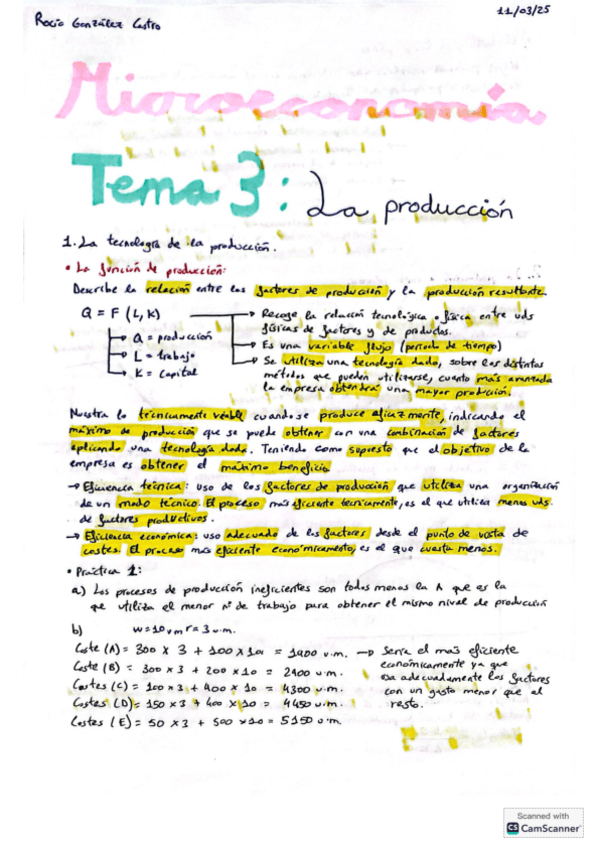 11/03/25
Rocío González Castro
Microeconomía
Tema 3: La producción
1. La tecnología de la producción.
• La función de producción:
Describe la relación entre los factores de producción y la producción resultante.
Q = F (L, K)
Q = producción
L = trabajo
K = capital
Recoge la relación tecnológica o física entre uds
físicas de factores y de productos.
Es una variable flujo (periodo de tiempo)
Se utiliza una tecnología dada, sobre los distintos
métodos que pueden utilizarse, cuanto más avanzada
la empresa obtendrá una mayor producción.
Muestra lo técnicamente viable cuando se produce eficazmente, indicando el
máximo de producción que se puede obtener con una combinación de factores
aplicando una tecnología dada. Teniendo como supuesto que el objetivo de la
empresa es obtener el máximo beneficio
→ Eficiencia técnica: uso de los factores de producción que utiliza una organización
de un modo técnico. El proceso más eficiente técnicamente, es el que utiliza menos uds.
de factores productivos.
→ Eficiencia económica: uso adecuado de los factores desde el punto de vista de
costes. El proceso más eficiente económicamente, es el que cuesta menos.
• Práctica 1:
a) Los procesos de producción ineficientes son todos menos la A que es la
que utiliza el menor nº de trabajo para obtener el mismo nivel de producción
b) w=10 u.m r=3 u.m.
Coste (A) = 300 x 3 + 100 x 10 = 1900 u.m. → Sería el más eficiente
económicamente ya que
usa adecuadamente los factores
con un gasto menor que el
resto.
Coste (B) = 300 x 3 + 200 x 10 = 2900 u.m.
Costes (C) = 100 x 3 + 400 x 10 = 4300 u.m.
Costes (D) = 150 x 3 + 400 x 10 = 4450 u.m.
Costes (E) = 50 x 3 + 500 x 10 = 5150 u.m.
Scanned with
CS CamScanner